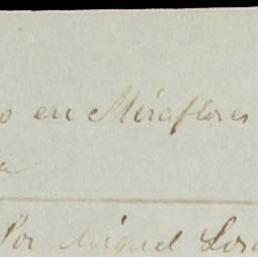 o en Miraflores
a
Por Miguel Lor